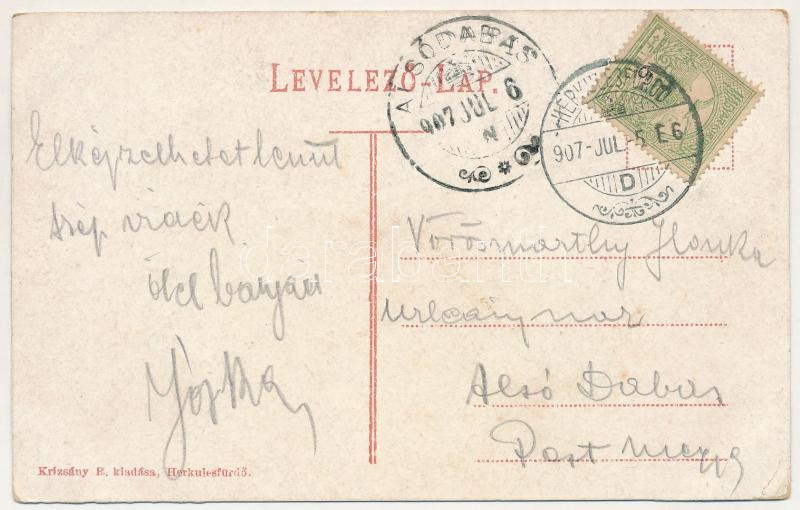 LEVELEZŐ-LAP.
ALSÓDABAS
907 JUL 6
N
907-JUL-5 E6
D
Elképzelhetetlenül
szép vidék
ölel bátyád
Jóska
Vörösmarthy Ilonka
urleánynak
Alsó Dabas
Pest megye
darabanth
Krizsány R. kiadása, Herkulesfürdő.